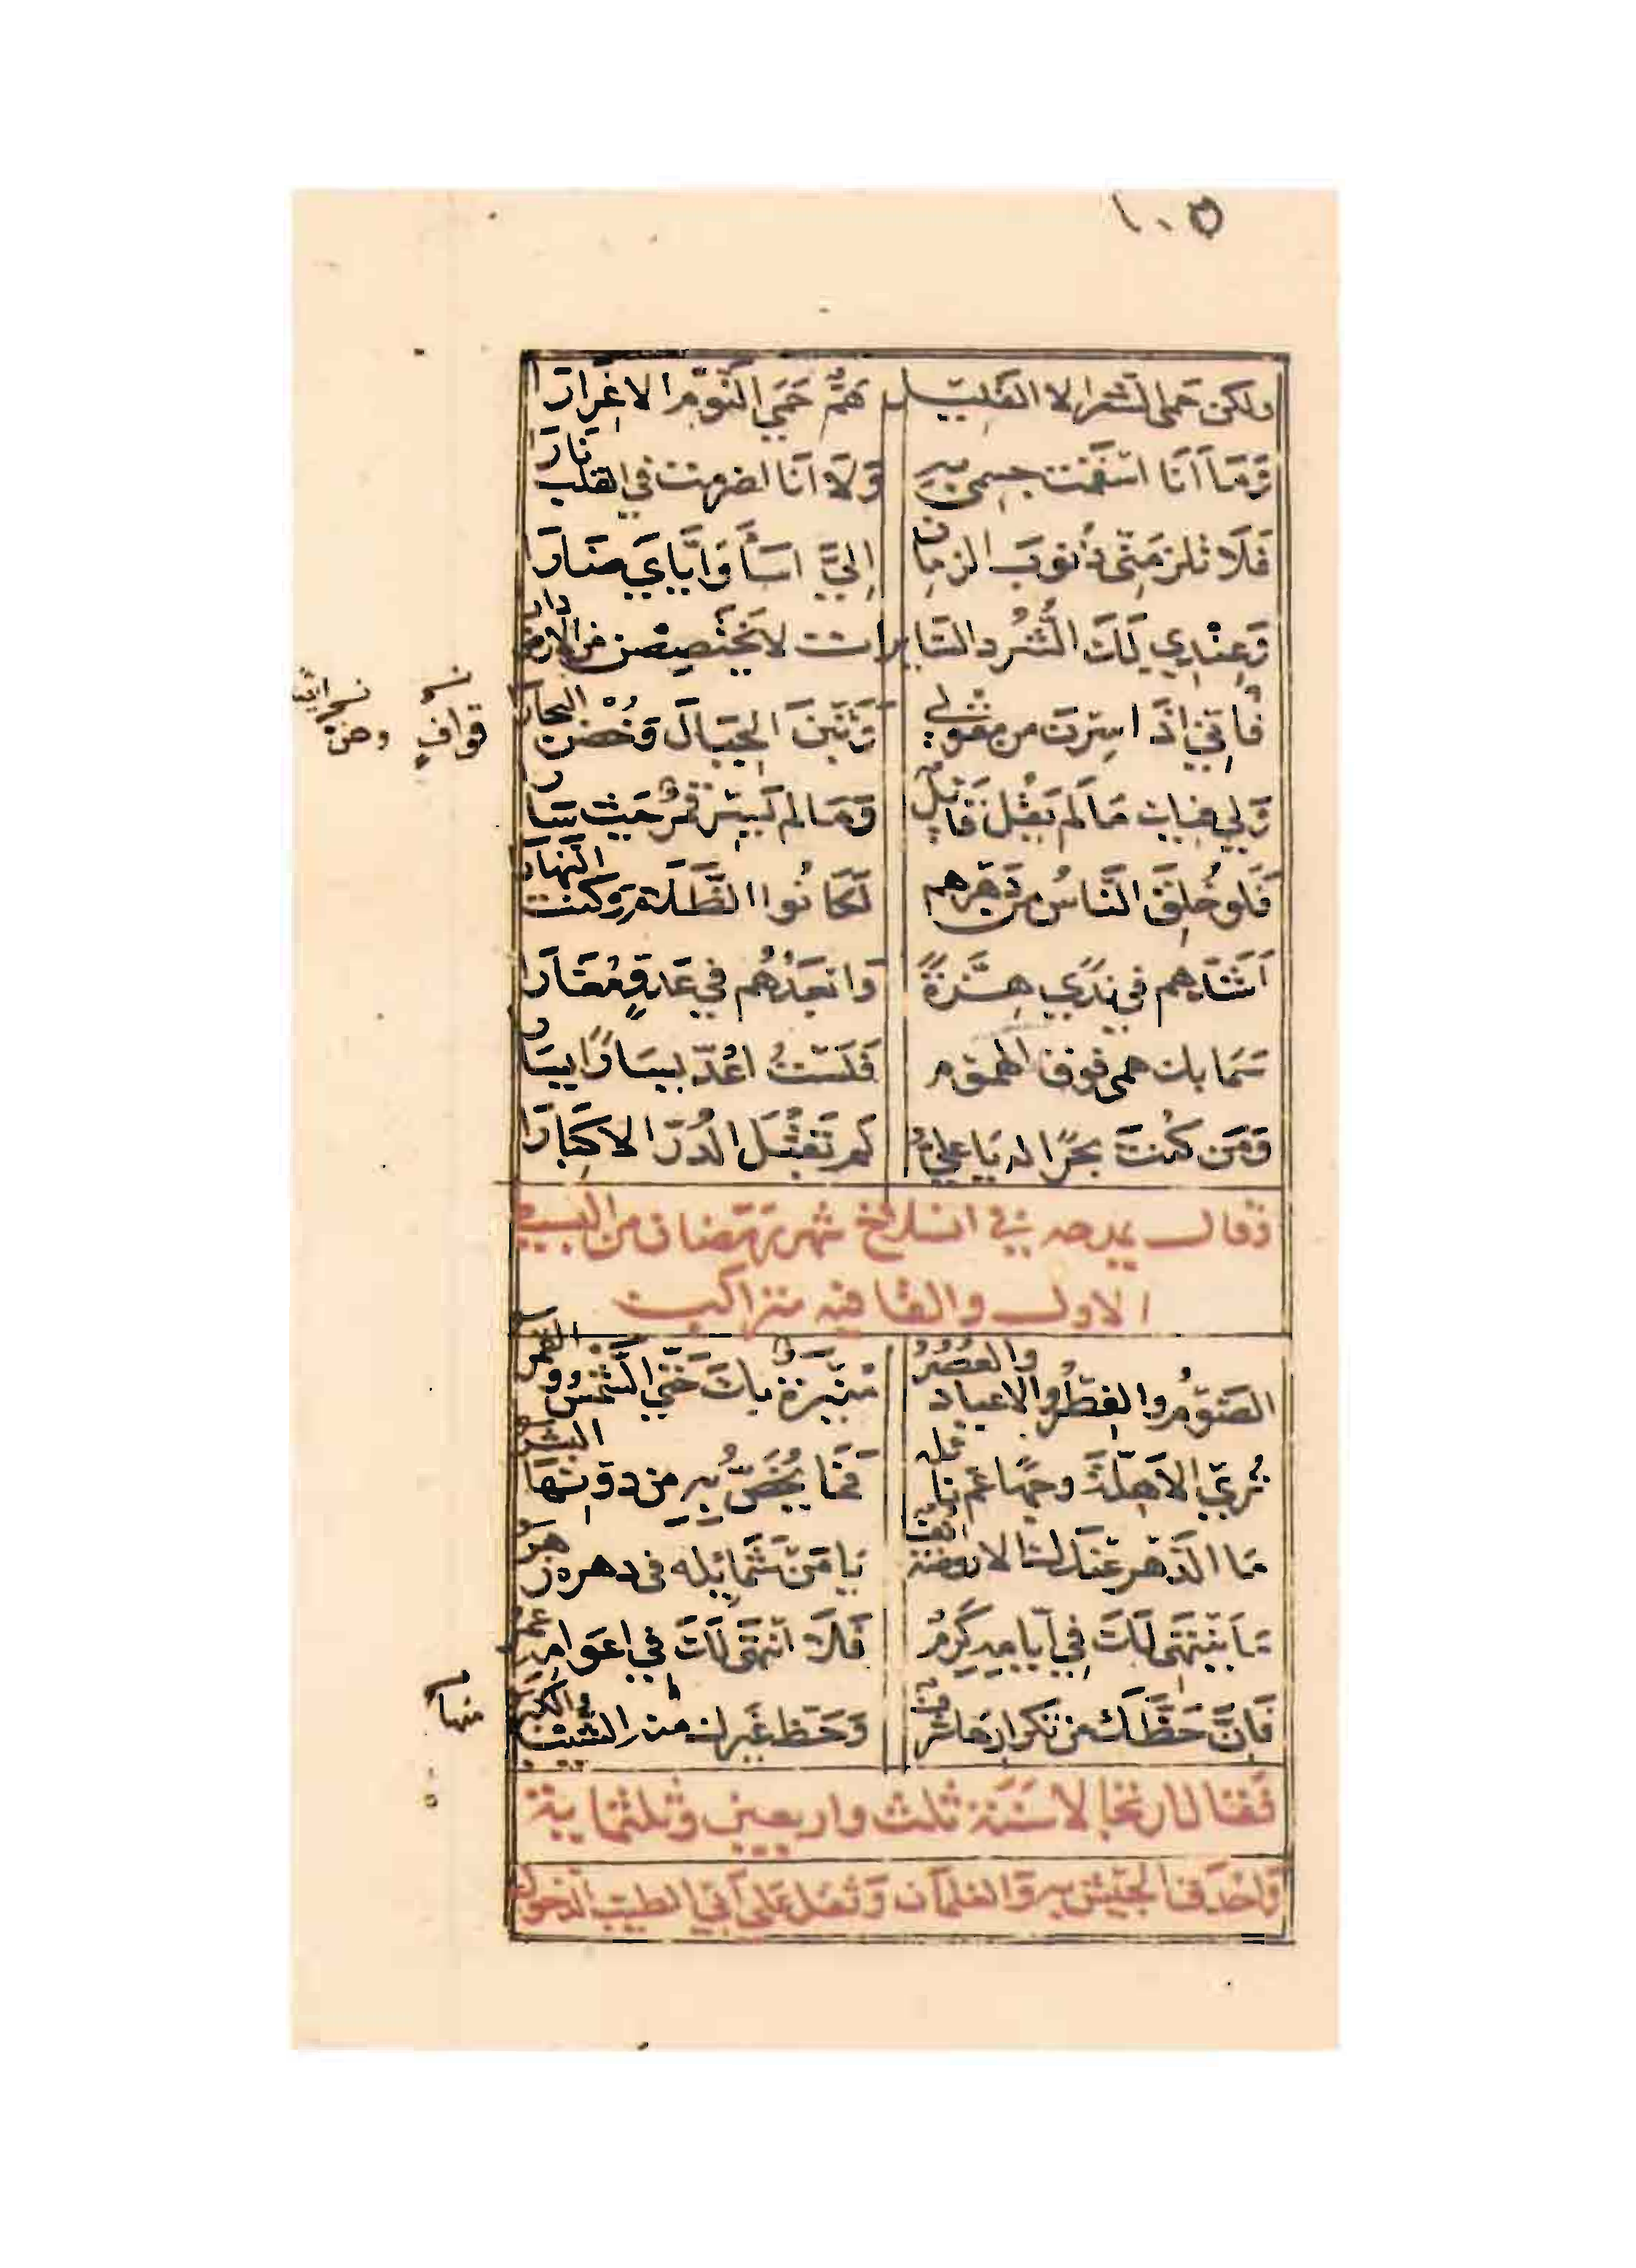 ١٠٥
ولكن حمى الشعر الا القليل هَمٌّ حَمَى النَّوْمَ الا غِرَارَا
وَمَا اَنَا اسقمت جسمى بِهِ وَلَا اَنَا اضرمت في القلب نَارَا
فَلَا تلزمَنّى ذُنُوبَ الزمان اِلَيَّ اسَأ وَاِيَّايَ ضَارَا
وَعِنْدِي لَكَ الشُّرُدِ السَّايرات لا يَخْتَصِصْنَ من الارض دارا
فَاِنّي اِذَا سِرْتَ من مِقْوَلي وَثَبْنَ الجِبَالَ وَخُضْنَ البحارا
قوافٍ
وَلِي فيك مَا لَم يَقُلْ قَايِلٌ وَمَا لم يَسِرْ قَمَرٌ حَيْثُ سَارَا
فَلَو خُلِقَ النَّاسُ من دَهْرِهم لَكَانُوا الظَّلَامَ وَكنت النَّهَارَا
اَشَدّهم في نَدًى هِزَّةً وَابعَدُهُم في عَدوٍّ مُغَارَا
سَمَا بك همى فوق الهموم فَلَسْتُ اَعُدّ يَسَارًا يَسَارَا
وَمَن كُنتَ بَحْرًا له يَا عليُّ لَم تَقْبَل الدُّرَّ الا كِبَارَا
وقال يمدحه في انسلاخ شهر رمضان من البسيط
الاول والقافيه متراكب
الصَّوْمُ والفِطْرُ والاعياد والعُصُرُ مُنِيرَةٌ بِكَ حَتَّى الشَّمْسُ والقمر
تُرِي الاَهِلَّةَ وجهًا عَمّ نايله فَمَا يُخَصُّ بِهِ من دونِهَا البشر
مَا الدَّهر عندك الا روضة انف يَا مَنْ شَمَائِله في دهره زهر
مَا يَنْتَهِى لَكَ في اَيَّامِهِ كَرَمُ فَلَا انْتَهَى لَكَ في اعوامه عمر
فَاِنَّ حَظَّكَ من تكرارها شرف وَحَظّ غَيرك منه الشَّيْبُ والكبر
منها
فقال ارتجالا سَنَة ثلث واربعين وثلثماية
وَاحدق الجيش به وَالغلمان وَثقل على ابي الطيب الدخول